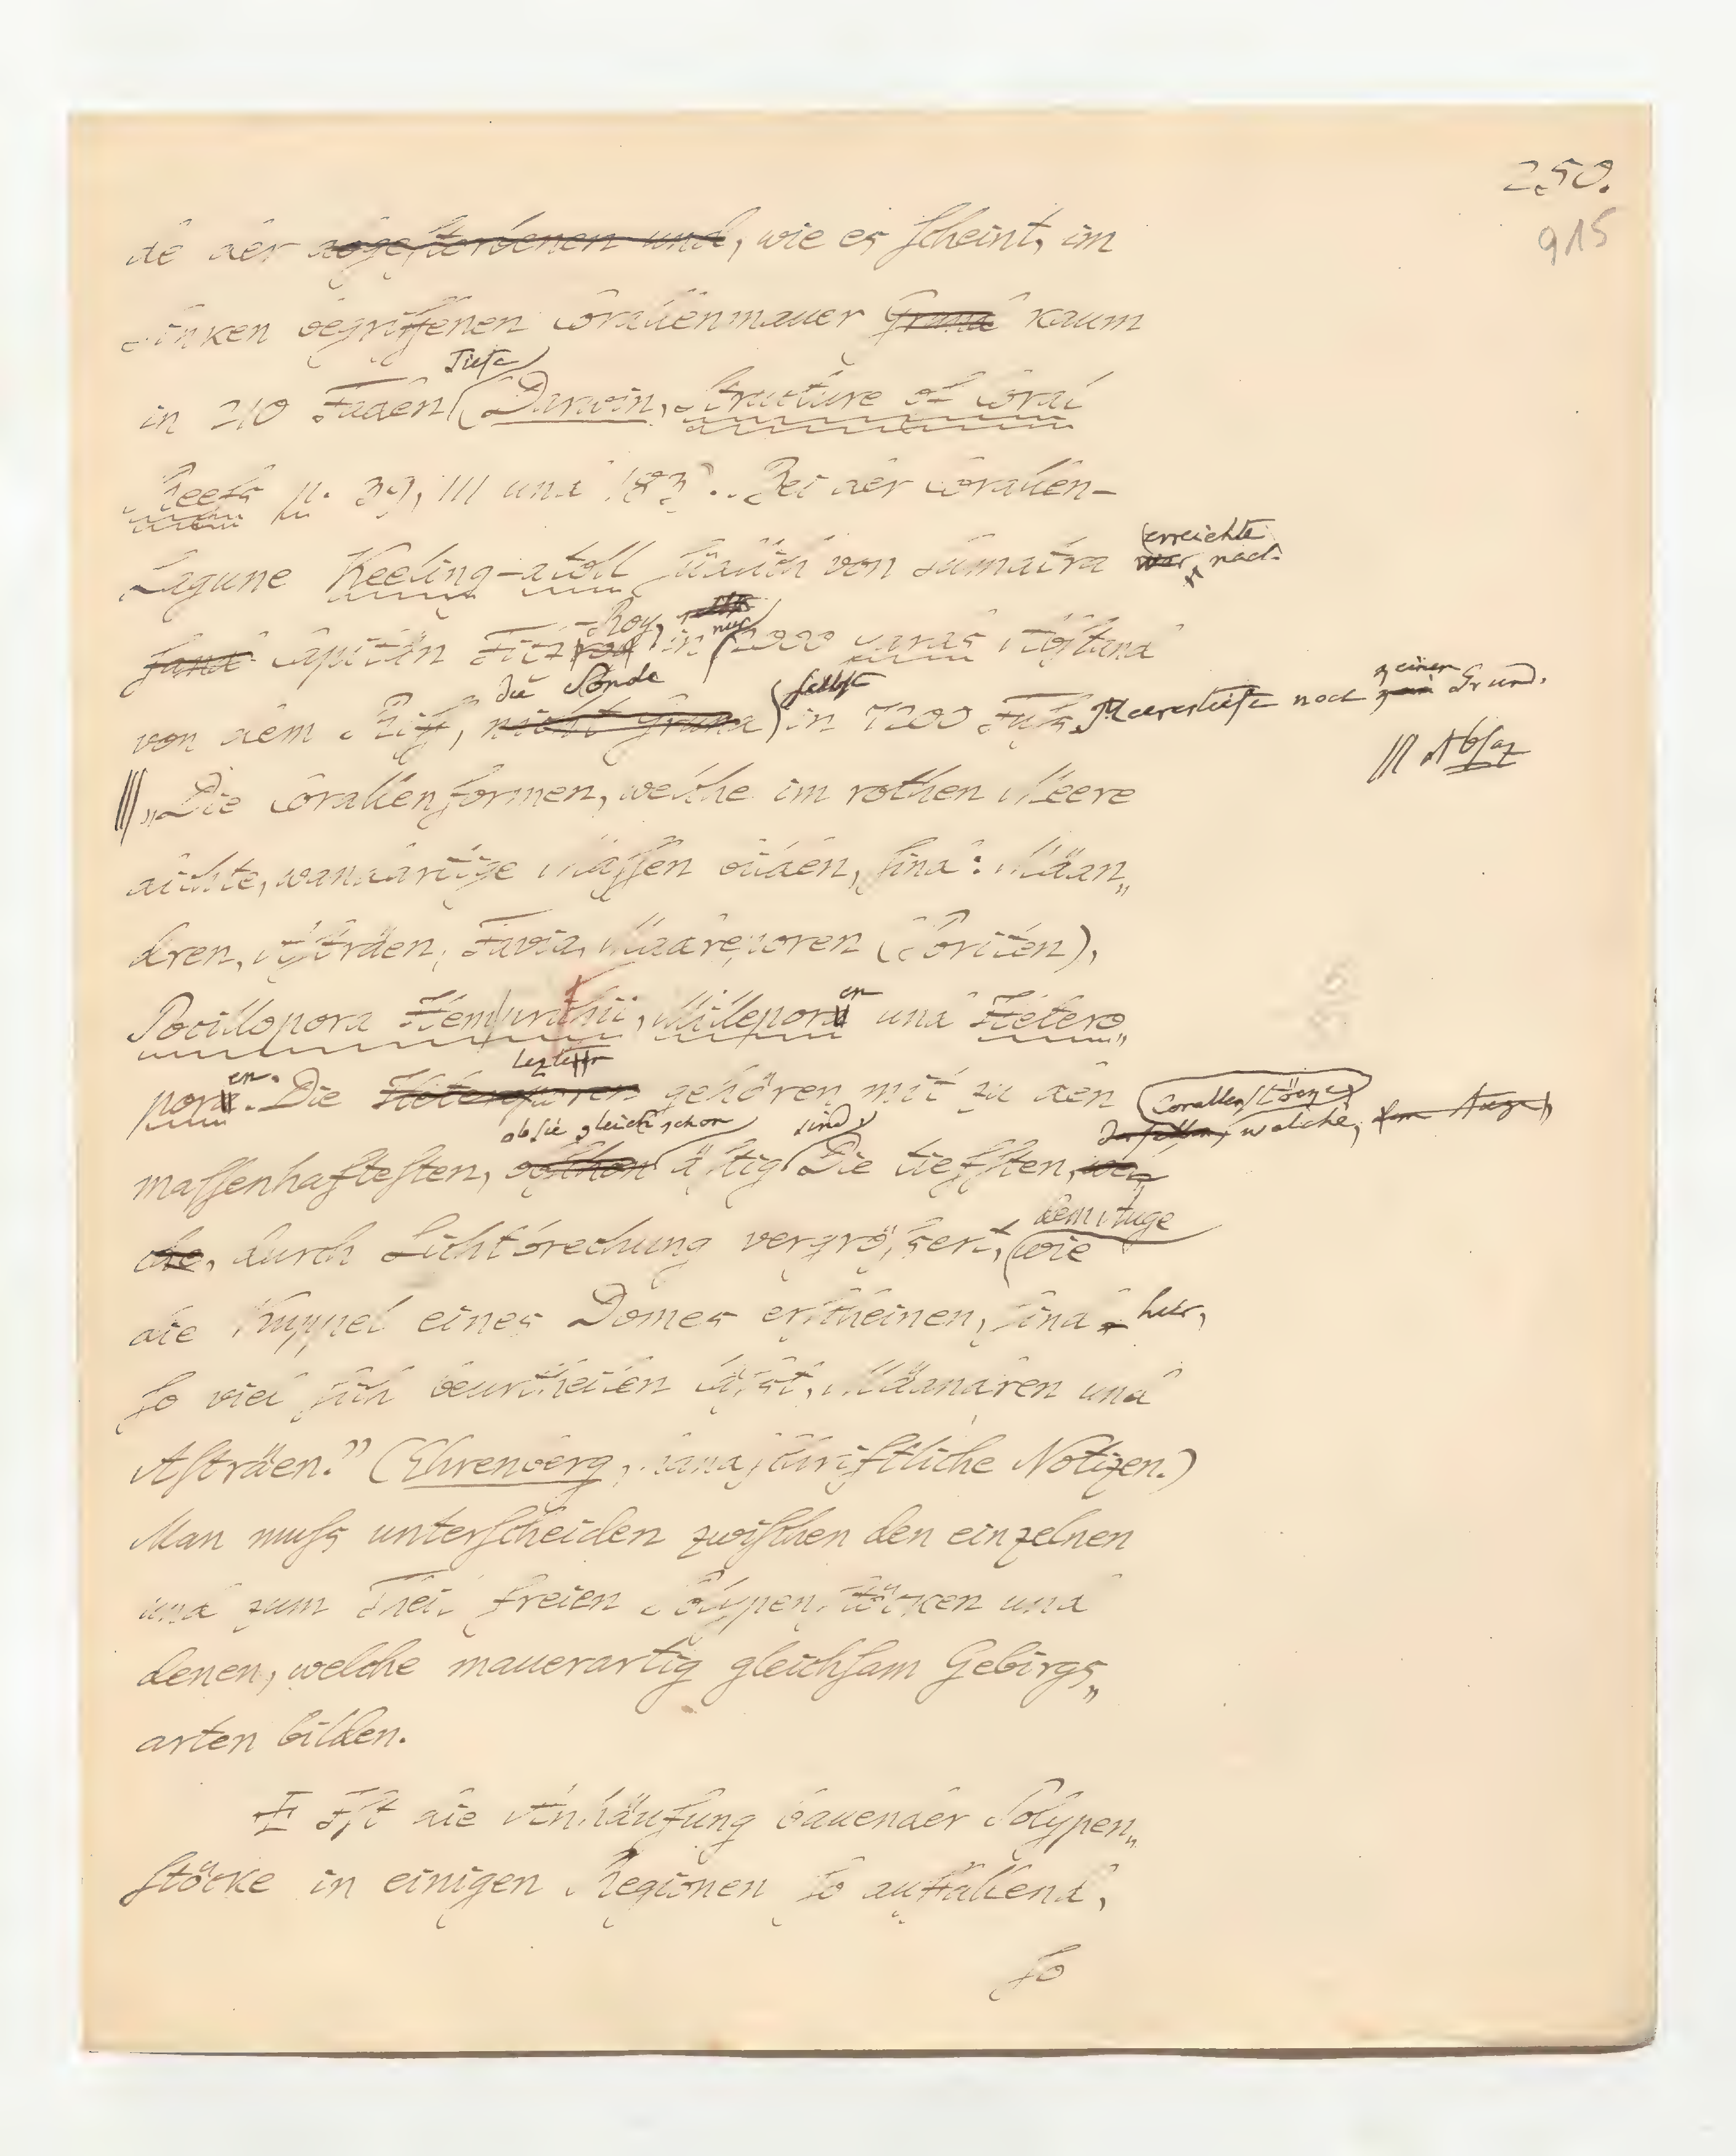 250.
915
de der abgestorbenen und, wie es scheint, im
Sinken begriffenen Corallenmauer Grund kaum
Tiefe
in 210 Faden (Darwin, Structure of Coral
Reefs p. 39, 111 und 183). Bei der Corallen-
erreichte
Lagune Keeling-atoll südlich von Sumatra war, nach
Roy, nur
fand Capitän Fitz in 2000 yards Abstand
die Sonde selbst
von dem Riff, nicht Grund in 7200 Fuß Meerestiefe noch keinen Grund.
Absaz
„Die Corallenformen, welche im rothen Meere
dichte, wandartige Massen bilden, sind: Mäan„
dren, Asträen, Favia, Madreporen (Poriten),
en
Pocillopora Hemprichii, Millepora und Hetero„
en. leztern
pora. Die Heteroporen gehören mit zu den Corallenstöcke
obsie gleich schon sind
massenhaftesten, obschon ästig Die tiefsten, wel welche, dem Auge,
dem Auge
che, durch Lichtbrechung vergrößert, wie
die Kuppel eines Domes erscheinen, sind hier,
so viel sich beurtheilen läßt, Mäandren und
Asträen.” (Ehrenberg, handschriftliche Notizen.)
Man muß unterscheiden zwischen den einzelnen
und zum Theil freien Polypenstöcken und
denen, welche mauerartig gleichsam Gebirgs„
arten bilden.
Ist die Anhäufung bauender Polypen„
stöcke in einigen Regionen so auffallend,
so